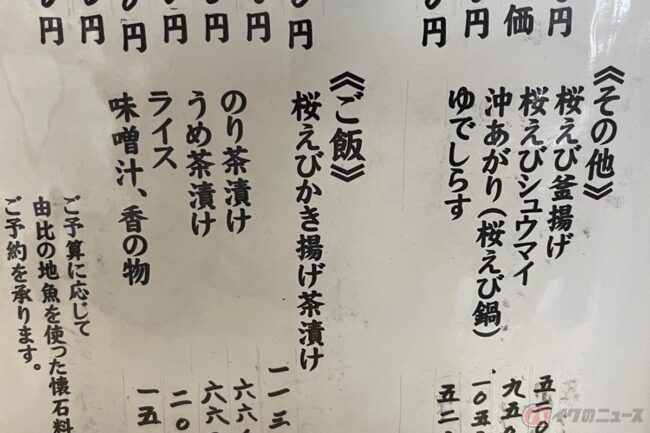 円
価
円
円
《その他》
桜えび釜揚げ
桜えびシュウマイ
沖あがり(桜えび鍋)
ゆでしらす
五二〇
九五〇
一〇五
五二
円
円
円
円
円
円
円
《ご飯》
桜えびかき揚げ茶漬け
のり茶漬け
うめ茶漬け
ライス
味噌汁、香の物
一一三
六六
六六
二〇
一五
ご予算に応じて
由比の地魚を使った懐石料
ご予約を承ります。
バイクのニュース